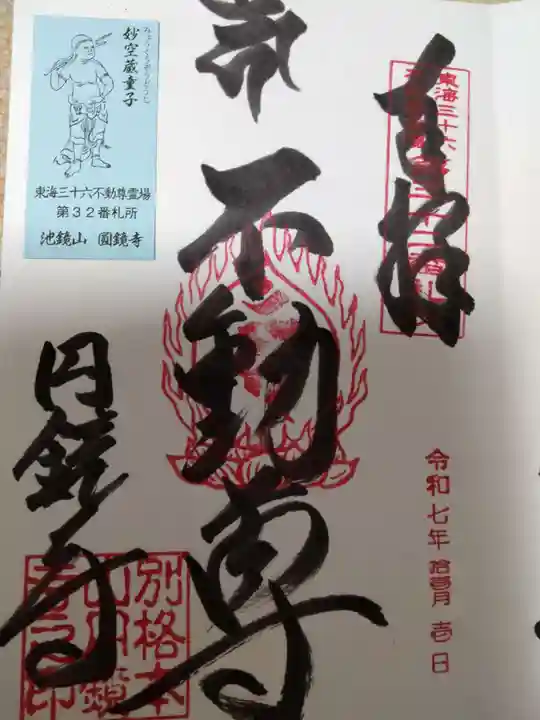 奉拝
東海三十六不動尊霊場
令和七年拾壱月壱日
不動尊
円鏡寺
別格本山円鏡寺之印
みょうくうぞうどうじ
妙空蔵童子
東海三十六不動尊霊場
第32番札所
池鏡山 圓鏡寺